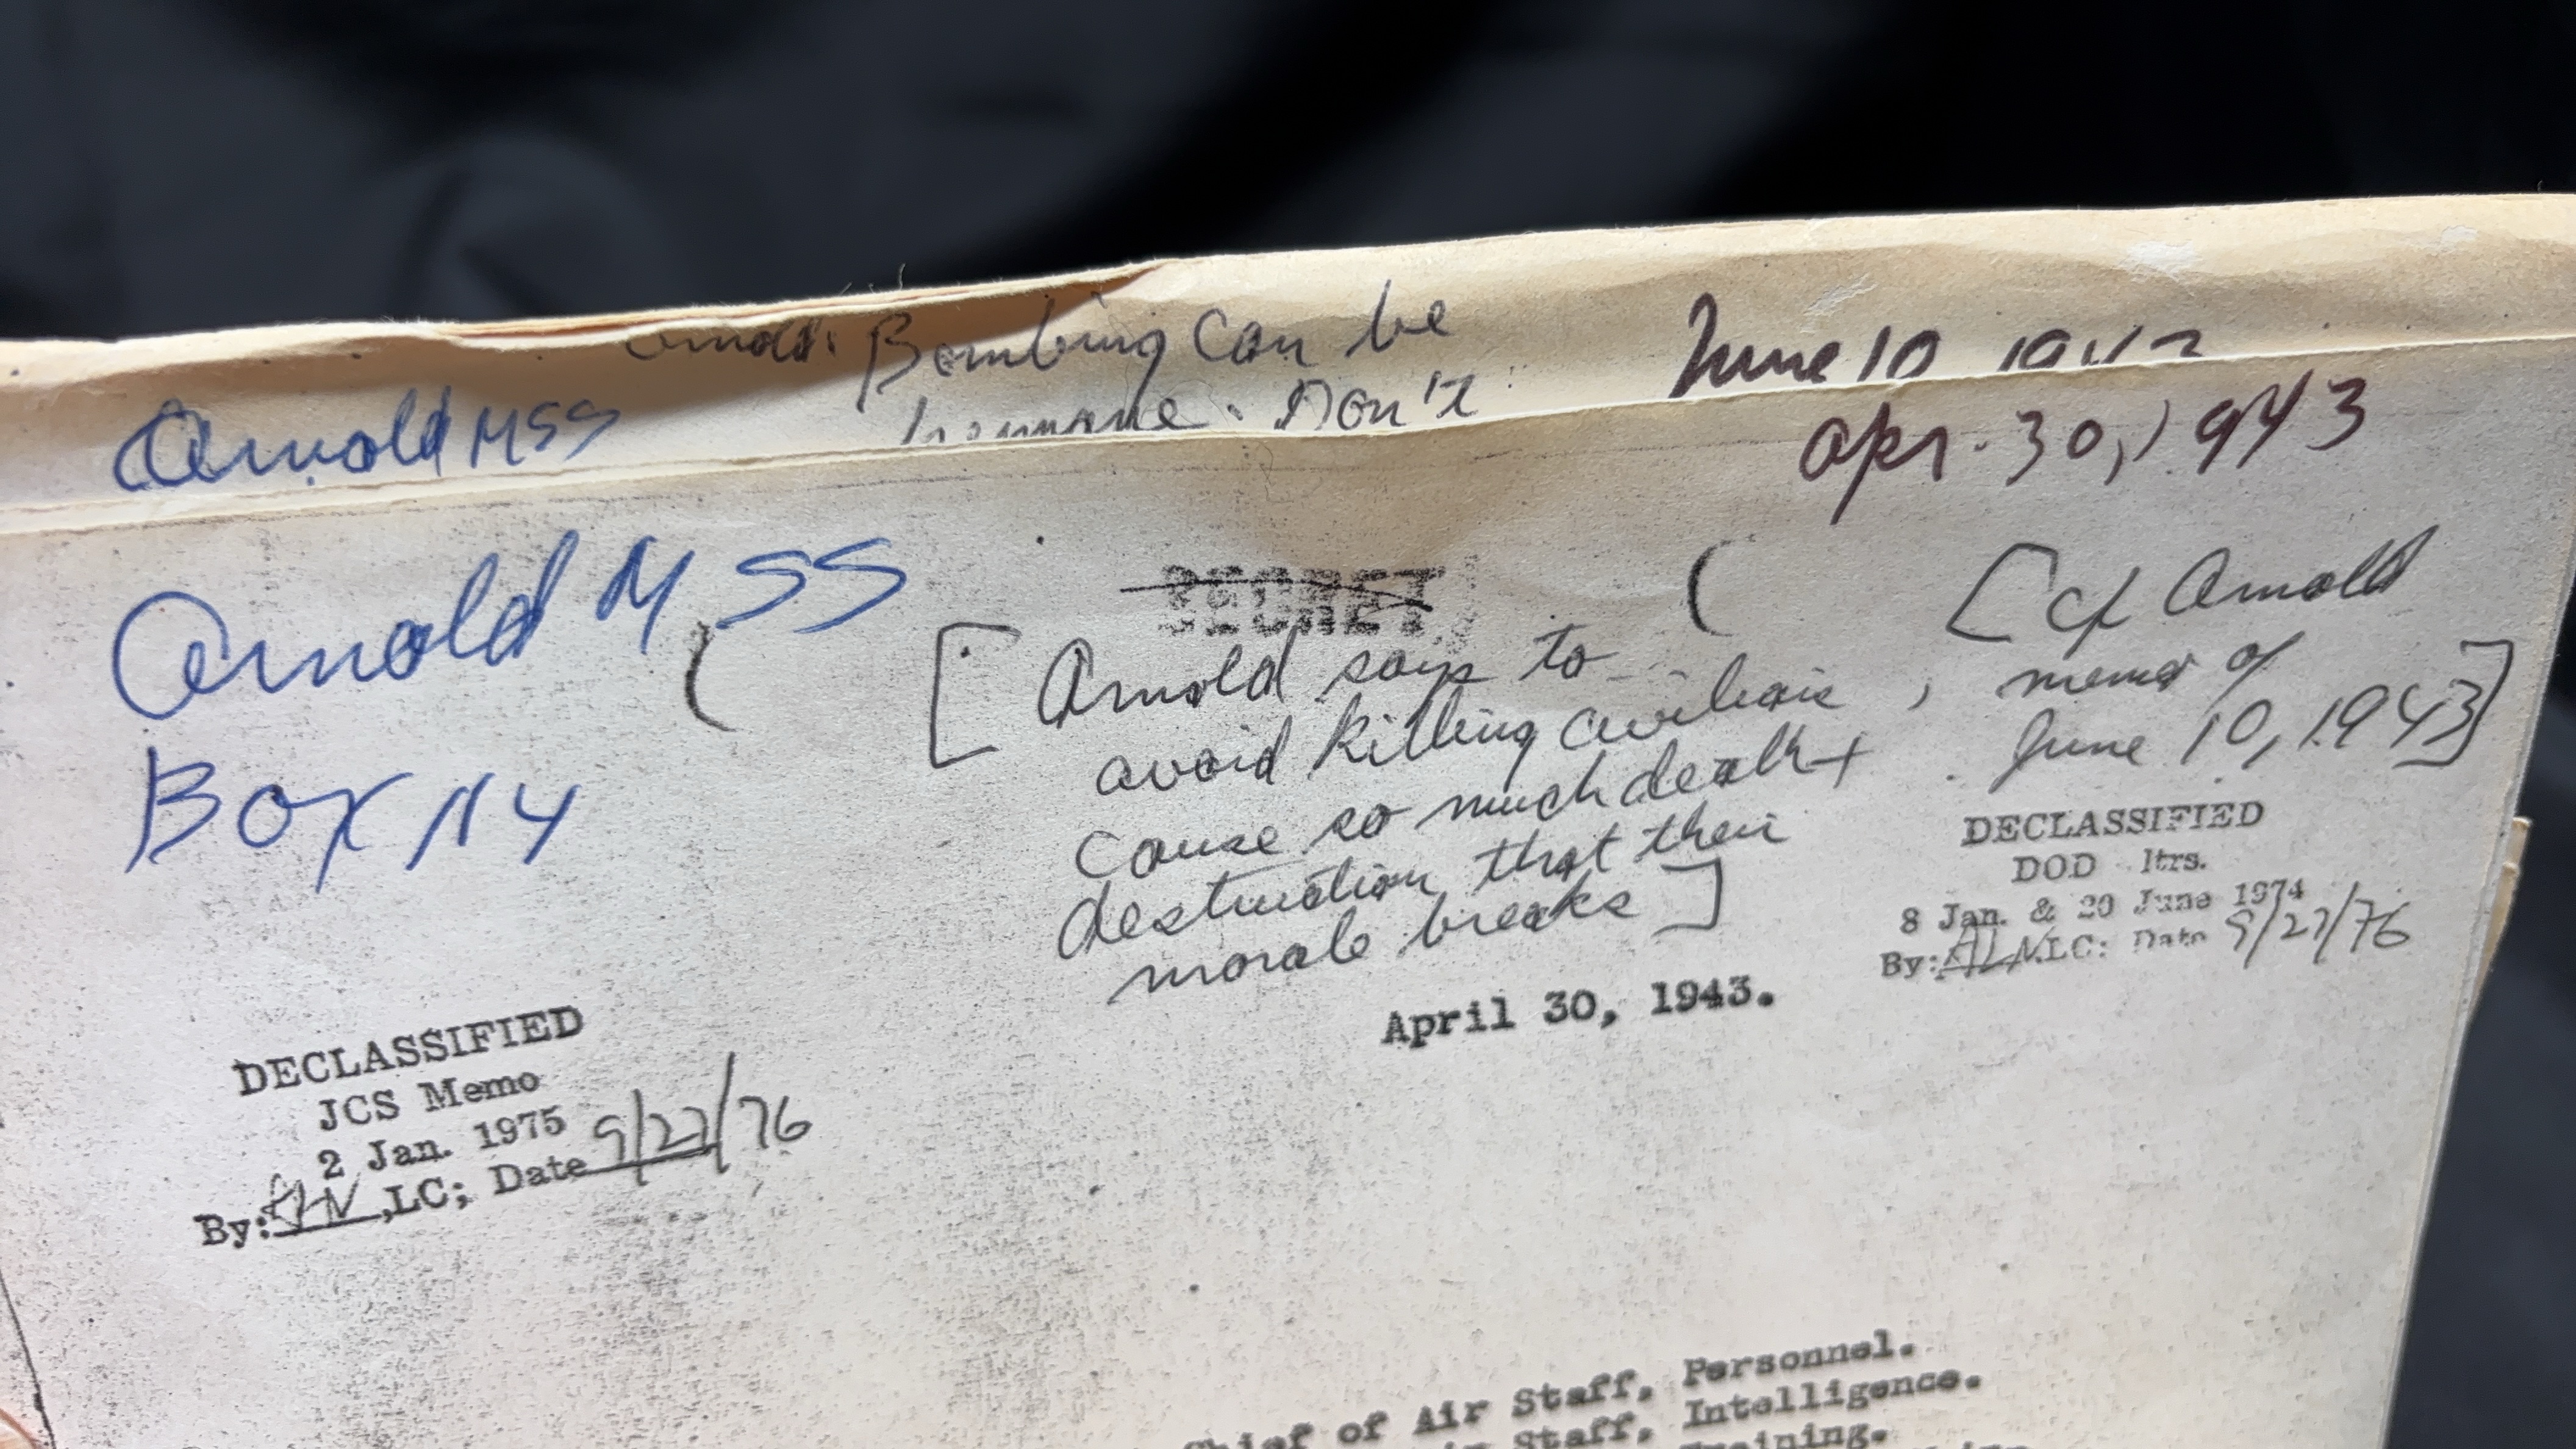 Arnold: Bombing can be
inhumane. Don't
June 10
Arnold MSS
Apr. 30, 1943
Arnold MSS
Box 114
SECRET
[Arnold says to
avoid killing civilians,
cause so much death +
destruction that their
morale breaks]
[cf Arnold
memo of
June 10, 1943]
DECLASSIFIED
DOD ltrs.
8 Jan. & 20 June 1974
By: ALN LC: Date 9/27/76
April 30, 1943.
DECLASSIFIED
JCS Memo
2 Jan. 1975
By: ALN, LC; Date 9/27/76
Chief of Air Staff, Personnel.
Staff, Intelligence.
Training.